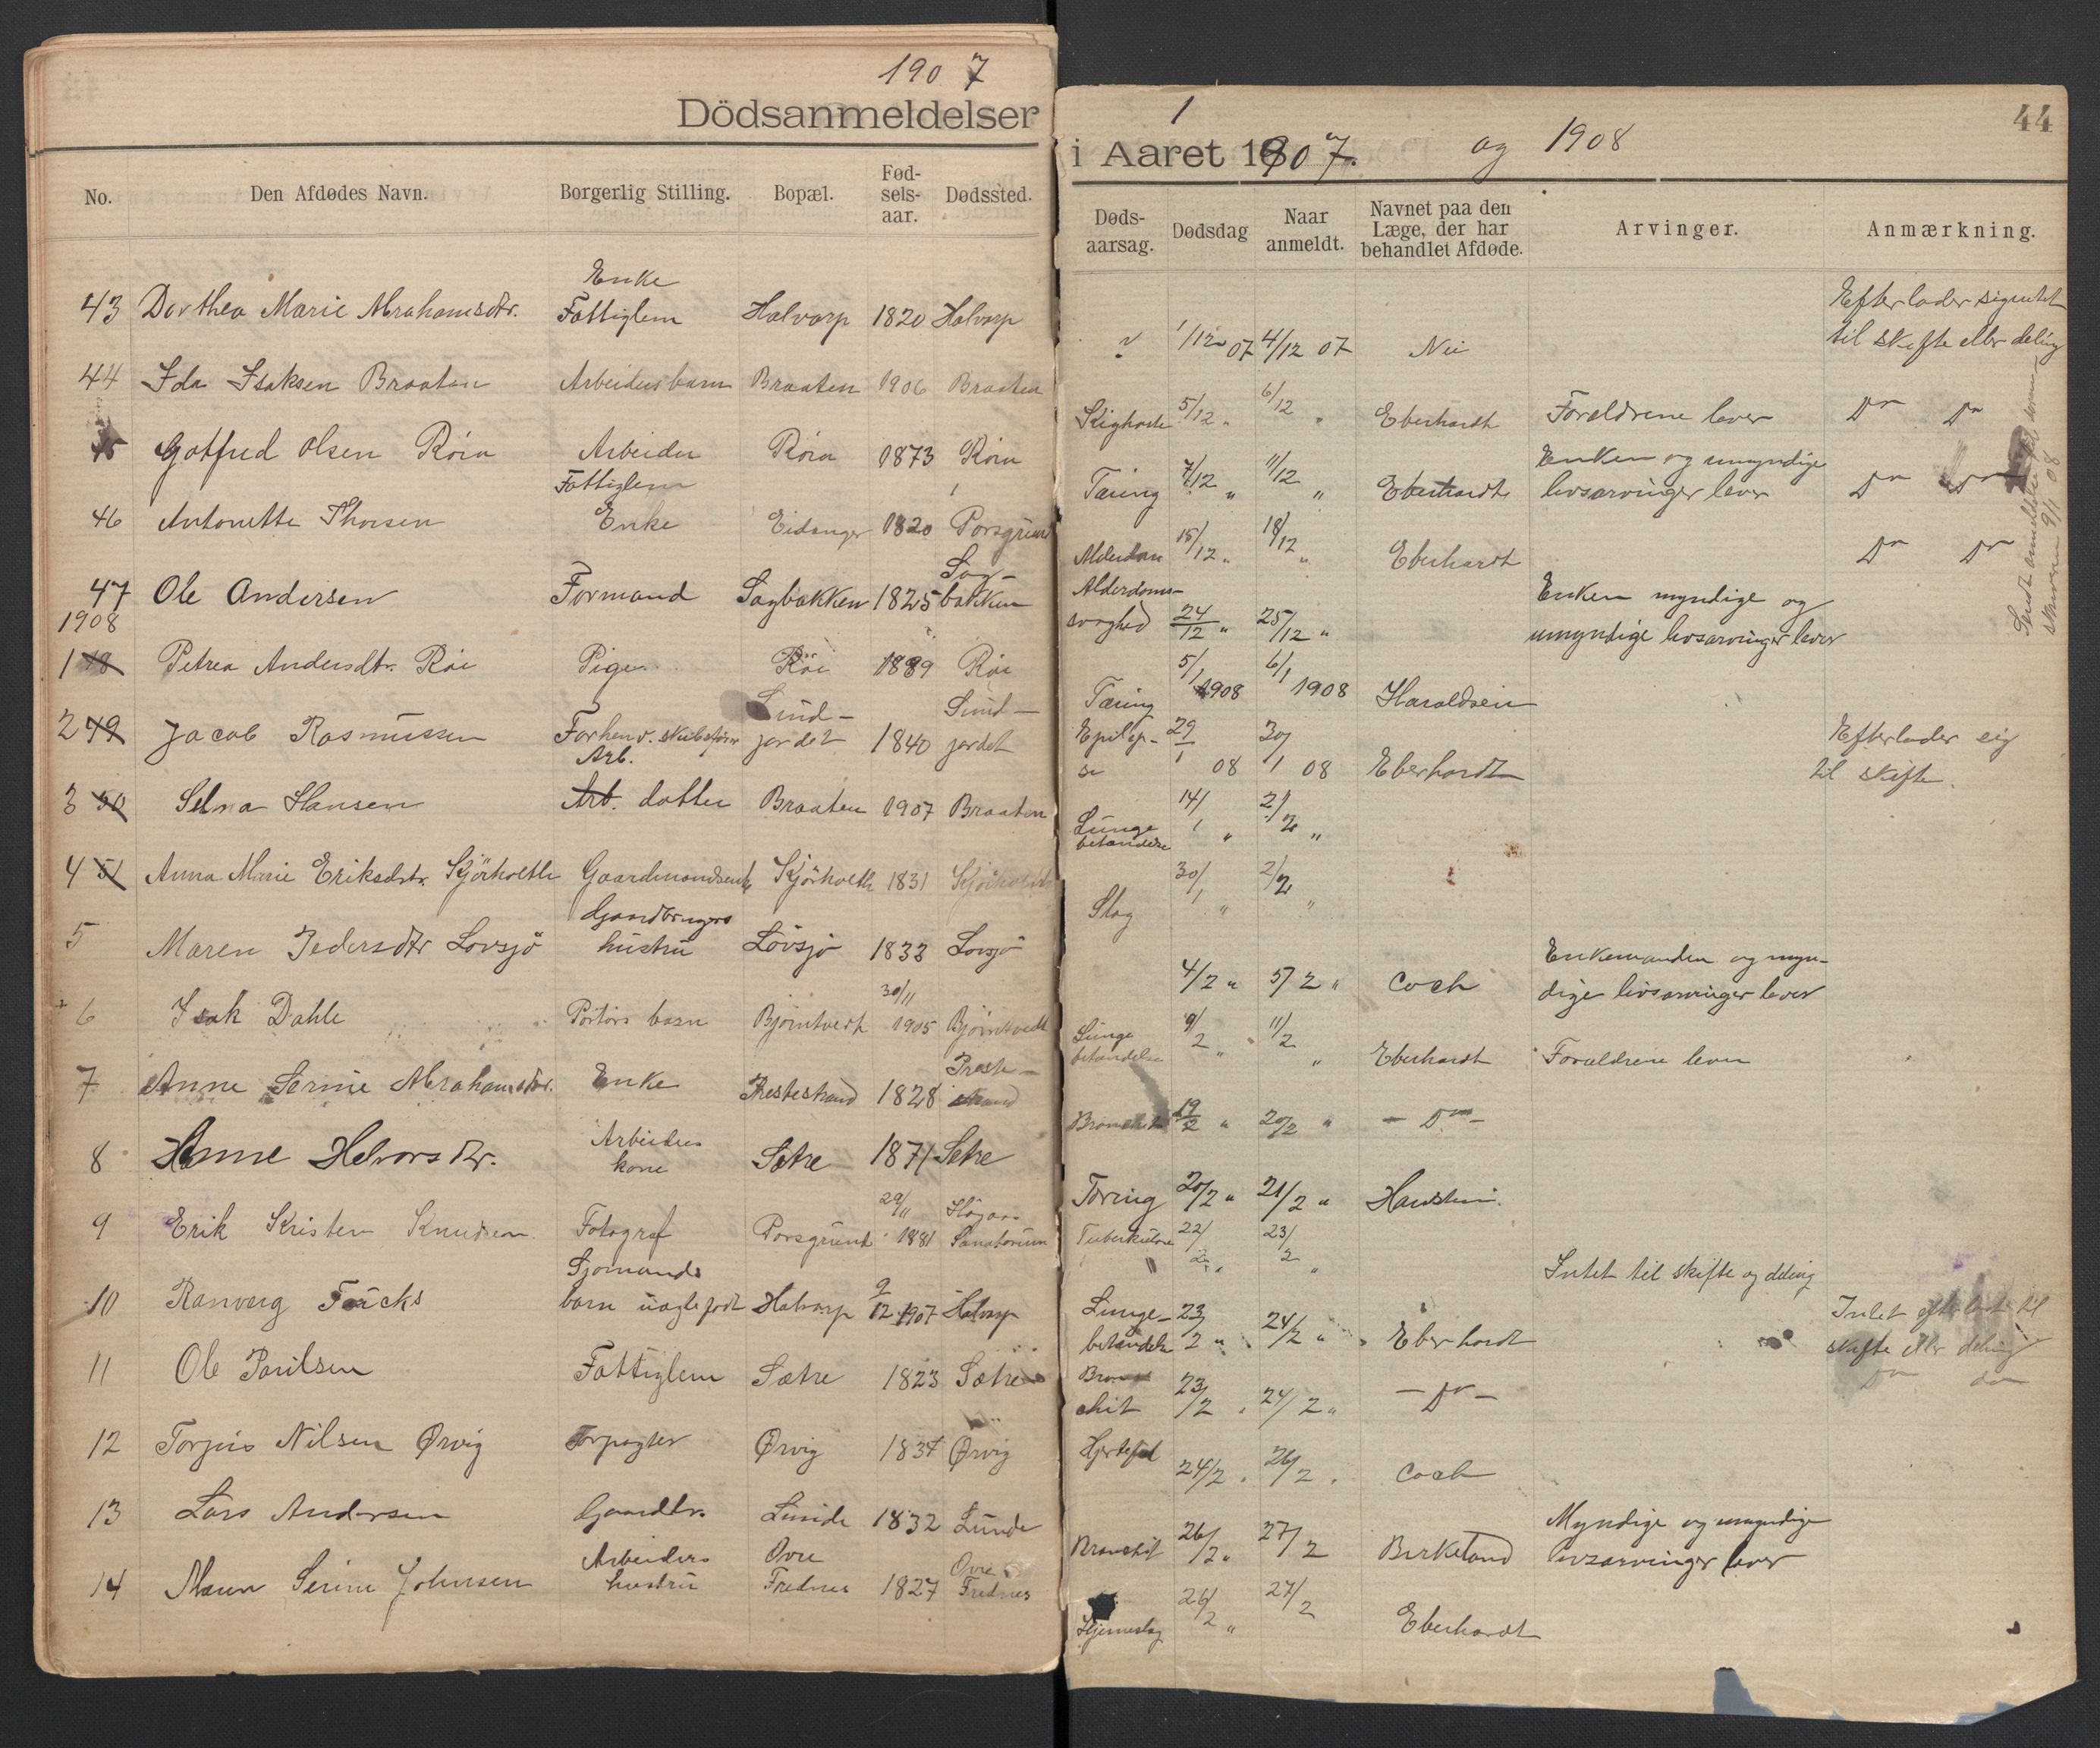 1907
Dödsanmeldelser
No. Den Afdødes Navn. Borgerlig Stilling. Bopæl. Fød- sels- aar. Dødssted.
Enke
43 Dorthea Marie Abrahamsdtr. Fattiglem Halvarp 1820 Halvarp
44 Ida Isaksen Braaten Arbeidersbarn Braaten 1906 Braaten
45 Gotfred Olsen Röra Arbeider Röra 1873 Röra
Fattiglem
46 Antonette Thorsen Enke Eidanger 1820 Porsgrund
Sag-
47 Ole Andersen Formand Sagbakken 1825 bakken
1908
1 48 Petrea Andersdtr. Röe Pige Röe 1889 Röe
Sund- Sund-
2 49 Jacob Rasmussen Forhenv. jordet 1840 jordet
Arb.
3 50 Selma Hansen Arb. datter Braaten 1907 Braaten
4 51 Anna Marie Eriksdtr. Kjörholth Gaardmandsenke Kjörholth 1831 Kjörholth
Gaardbrugers
5 Maren Pedersdtr Lövsjö hustru Lövsjö 1833 Lövsjö
30/11
6 Isak Dahle Portörs barn Bjørntvedt 1905 Bjørntvedt
Preste-
7 Anne Serine Abrahamsdtr. Enke Prestestrand 1828 strand
Arbeiders
8 Anne Halvorsdtr. kone Sætre 1871 Sætre
29/11
9 Erik Kristen Knudsen Fotograf Porsgrund 1881 Sanatorium
Sjomands
10 Ranveig Fücks barn uægte født Halvarp 9/12 1907 Halvarp
11 Ole Paulsen Fattiglem Sætre 1823 Sætre
12 Torjus Nilsen Ørvig Forpagter Ørvig 1837 Ørvig
13 Lars Andersen Gaardbr. Lunde 1832 Lunde
Arbeiders Ovre Ovre
14 Maren Serine Johnsen hustru Frednes 1827 Frednes
1
44
i Aaret 1907. og 1908
Døds- aarsag. Dødsdag Naar anmeldt. Navnet paa den Læge, der har behandlet Afdøde. Arvinger. Anmærkning.
Efterlader sig intet
? 1/12 07 4/12 07 Nei til skifte eller deling
Kighoste 5/12 " 6/12 " Eberhardt Forældrene lever Do Do
Enken og umyndige
Tæring 7/12 " 11/12 " Eberhardt livsarvinger lever Do Do
Alderdom 15/12 " 18/12 " Eberhardt Do Do
Alderdoms- Enken myndige og
svaghed 24/12 " 25/12 " umyndige livsarvinger lever
Tæring 5/1 1908 6/1 1908 Haraldsen
Epilep- Efterlader sig
si 29/1 08 30/1 08 Eberhardt til skifte.
Lunge
betændelse 14/1 " 2/2 "
Slag 30/1 " 2/2 "
Enkemanden og myn-
4/2 " 5/2 " Coch dige livsarvinger lever
Lunge
betændelse 9/2 " 11/2 " Eberhardt Forældrene lever
Bronchit 19/2 " 20/2 " - Do -
Tæring 20/2 " 21/2 "
Tuberkulose 22/2 " 23/2 "
Intet til skifte og deling
Lunge- Intet efterladt til
betændelse 23/2 " 24/2 " Eberhardt skifte eller deling
Bron-
chit 23/2 " 24/2 " - Do - Do do
Hjertefeil 24/2 " 26/2 " Coch
Myndige og umyndige
Bronchit 26/2 " 27/2 Birkeland livsarvinger lever
Hjerneslag 26/2 " 27/2 Eberhardt